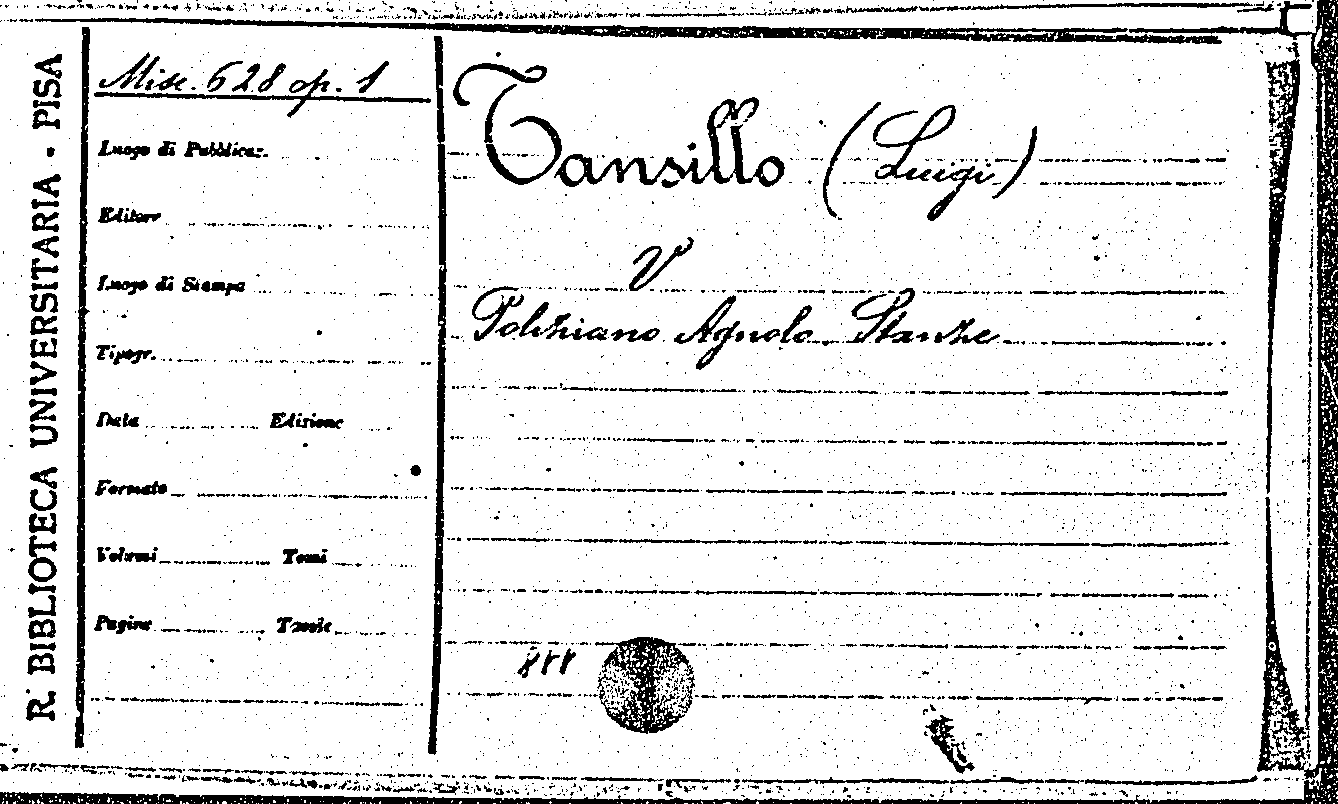 R. BIBLIOTECA UNIVERSITARIA - PISA
Misc. 628 op. 1
Luogo di Pubblicaz.
Editore
Luogo di Stampa
Tipogr.
Data Edizione
Formato
Volumi Tomi
Pagine Tavole
Tansillo (Luigi)
V
Poliziano Agnolo Stanze